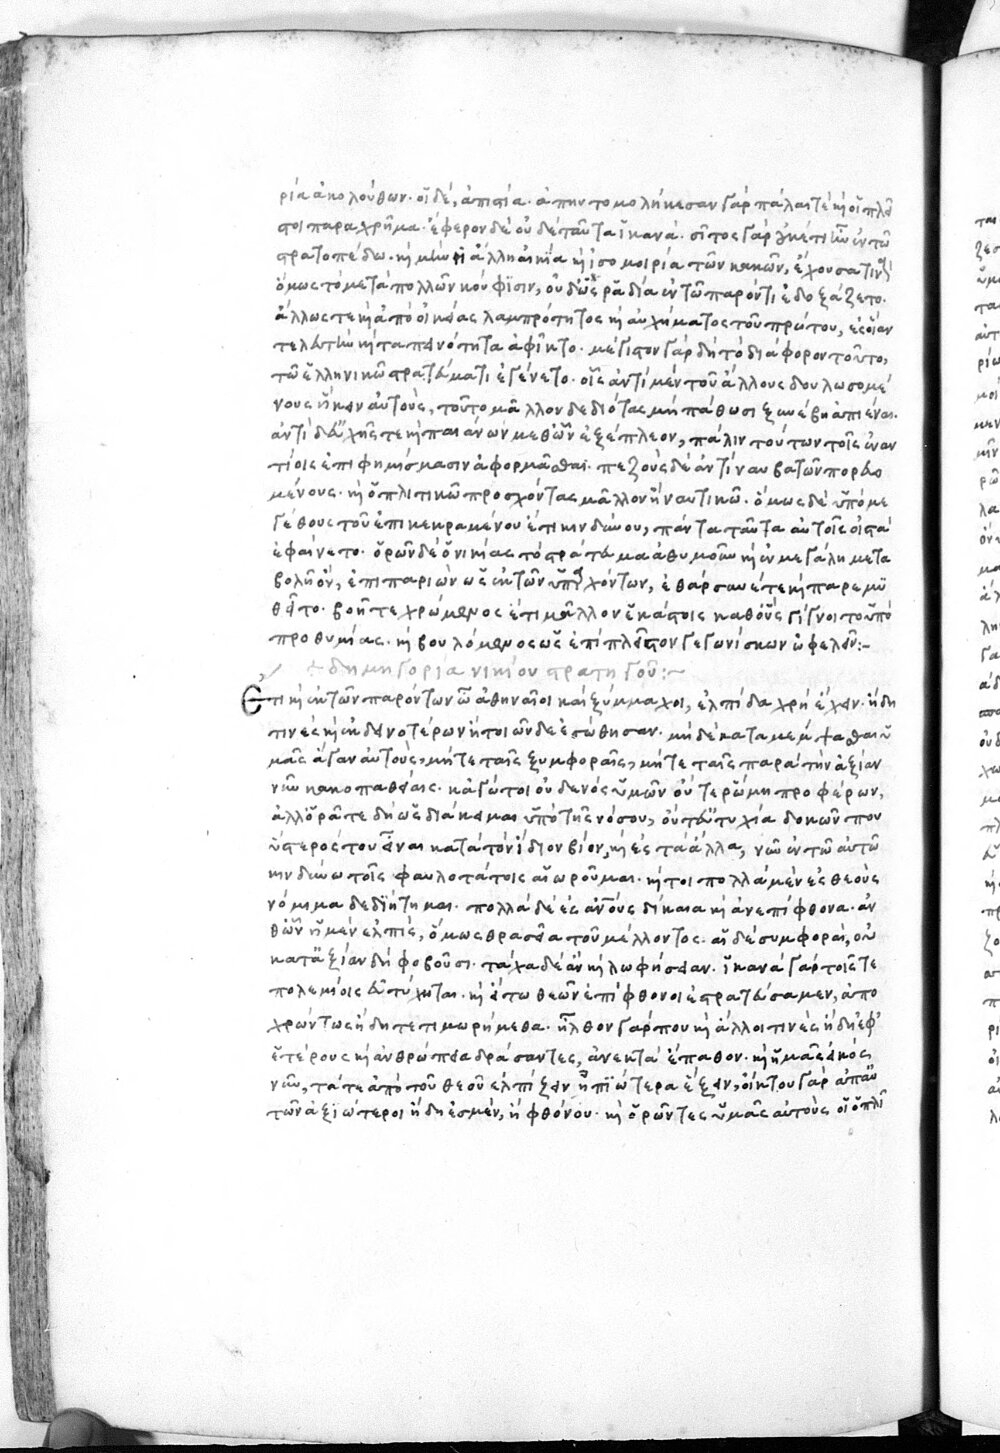 ρία ἀκολούθων· οἱ δὲ, ἀπιστία· ἀπηυτομολήκεσαν γὰρ πάλαι τὲ κỳ οἱ πλεῖ
στοι παραχρῆμα· ἔφερον δὲ οὐδὲ ταῦτα ἱκανά· σῖτος γὰρ οὐκέτι ἦν ἐν τῶ
στρατοπέδω· κỳ μὴν ἡ ἄλλη αἰκία κỳ ἰσομοιρία τῶν κακῶν, ἔχουσα τινὰ
ὅμως τὸ μετὰ πολλῶν κούφισιν, οὐδ' ὡς ῥᾴδια ἐν τῶ παρόντι ἐδοξάζετο·
ἄλλως τε κỳ ἀπὸ οἵας λαμπρότητος κỳ αὐχήματος τοῦ πρώτου, ἐς οἵαν
τελευτὴν κỳ ταπεινότητα ἀφῖκτο· μέγιστον γὰρ δὴ τὸ διάφορον τοῦτο,
τῶ ἑλληνικῶ στρατεύματι ἐγένετο· οἷς ἀντὶ μὲν τοῦ ἄλλους δουλωσομέ
νους ἥκειν αὐτοὺς, τοῦτο μᾶλλον δεδιότας μὴ πάθωσι ξυνέβη ἀπιέναι·
ἀντὶ δ' εὐχῆς τε κỳ παιάνων μεθ' ὧν ἐξέπλεον, πάλιν τούτων τοῖς ἐναν
τίοις ἐπιφημίσμασιν ἀφορμᾶσθαι· πεζοὺς δὲ ἀντὶ ναυβατῶν πορευο
μένους· κỳ ὁπλιτικῶ προσχόντας μᾶλλον ἢ ναυτικῶ· ὅμως δὲ ὑπὸ με
γέθους τοῦ ἐπικεκραμένου ἔτι κινδύνου, πάντα ταῦτα αὐτοῖς οἰστὰ
ἐφαίνετο· ὁρῶν δὲ ὁ νικίας τὸ στράτευμα ἀθυμοῦν κỳ ἐν μεγάλη μετα
βολῆ ὂν, ἐπιπαριὼν ὡς ἐκ τῶν ὑπαρχόντων, ἐθάρσυνέ τε κỳ παρεμυ
θεῖτο· βοῆ τε χρώμενος ἔτι μᾶλλον ἑκάστοις καθ' οὓς γίγνοιτο ὑπὸ
προθυμίας· κỳ βουλόμενος ὡς ἐπὶ πλεῖστον γεγωνίσκων ὠφελεῖν:~
+ δημηγορία νικίου στρατηγοῦ:~
Ἔτι κỳ ἐκ τῶν παρόντων ὦ ἀθηναῖοι καὶ ξύμμαχοι, ἐλπίδα χρὴ ἔχειν· ἤδη
τινὲς κỳ ἐκ δεινοτέρων ἢ τοιῶνδε ἐσώθησαν· μὴ δὲ καταμέμφεσθαι ὑ
μᾶς ἄγαν αὐτοὺς, μήτε ταῖς ξυμφοραῖς, μήτε ταῖς παρὰ τὴν ἀξίαν
νῦν κακοπαθείαις· κἀγώ τοι οὐδενὸς ὑμῶν οὔτε ῥώμη προφέρων,
ἀλλ' ὁρᾶτε δὴ ὡς διάκειμαι ὑπὸ τῆς νόσου, οὔτ' εὐτυχία δοκῶν που
ὕστερός του εἶναι κατὰ τὸν ἴδιον βίον, κỳ ἐς τὰ ἄλλα, νῦν ἐν τῶ αὐτῶ
κινδύνω τοῖς φαυλοτάτοις αἰωροῦμαι· κỳ τοι πολλὰ μὲν ἐς θεοὺς
νόμιμα δεδιήτημαι· πολλὰ δὲ ἐς ἀν̅ους δίκαια κỳ ἀνεπίφθονα· ἀν
θ' ὧν ἡ μὲν ἐλπὶς, ὅμως θρασεῖα τοῦ μέλλοντος· αἱ δὲ συμφοραὶ, οὐ
κατ' ἀξίαν δὴ φοβοῦσι· τάχα δὲ ἂν κỳ λωφήσειαν· ἱκανὰ γὰρ τοῖς τε
πολεμίοις εὐτύχηται· κỳ εἴ τω θεῶν ἐπίφθονοι ἐστρατεύσαμεν, ἀπο
χρώντως ἤδη τετιμωρήμεθα· ἦλθον γάρ που κỳ ἄλλοι τινὲς ἤδη ἐφ'
ἑτέρους κỳ ἀνθρώπεια δράσαντες, ἀνεκτὰ ἔπαθον· κỳ ἡμᾶς εἰκὸς
νῦν, τά τε ἀπὸ τοῦ θεοῦ ἐλπίζειν ἠπιώτερα ἕξειν, οἴκτου γὰρ ἀπ' αὐ
τῶν ἀξιώτεροι ἤδη ἐσμὲν, ἢ φθόνου· κỳ ὁρῶντες ὑμᾶς αὐτοὺς οἷοι ὁπλῖ